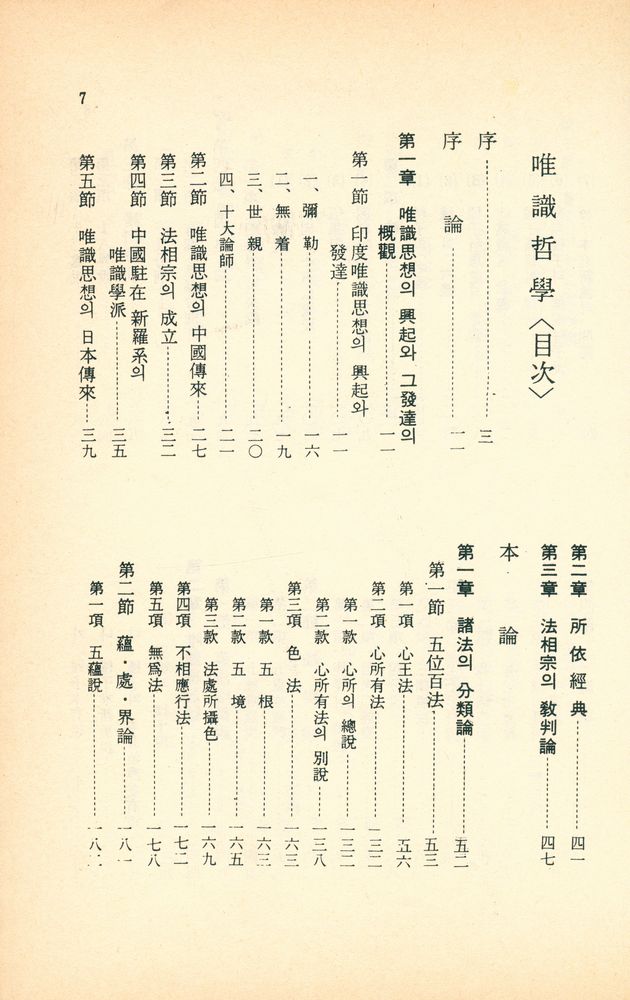 7
唯識哲學〈目次〉
序……三
序論……一一
第一章 唯識思想의 興起와 그 發達의
概觀……一一
第一節 印度唯識思想의 興起와
發達……一一
一、彌勒……一六
二、無着……一九
三、世親……二〇
四、十大論師……二一
第二節 唯識思想의 中國傳來……二七
第三節 法相宗의 成立……三二
第四節 中國駐在 新羅系의
唯識學派……三五
第五節 唯識思想의 日本傳來……三九
第二章 所依經典……四一
第三章 法相宗의 敎判論……四七
本論
第一章 諸法의 分類論……五二
第一節 五位百法……五三
第一項 心王法……五六
第二項 心所有法……一三二
第一款 心所의 總說……一三二
第二款 心所有法의 別說……一三八
第三項 色法……一六三
第一款 五根……一六三
第二款 五境……一六五
第三款 法處所攝色……一六九
第四項 不相應行法……一七二
第五項 無爲法……一七八
第二節 蘊・處・界論……一八一
第一項 五蘊說……一八二